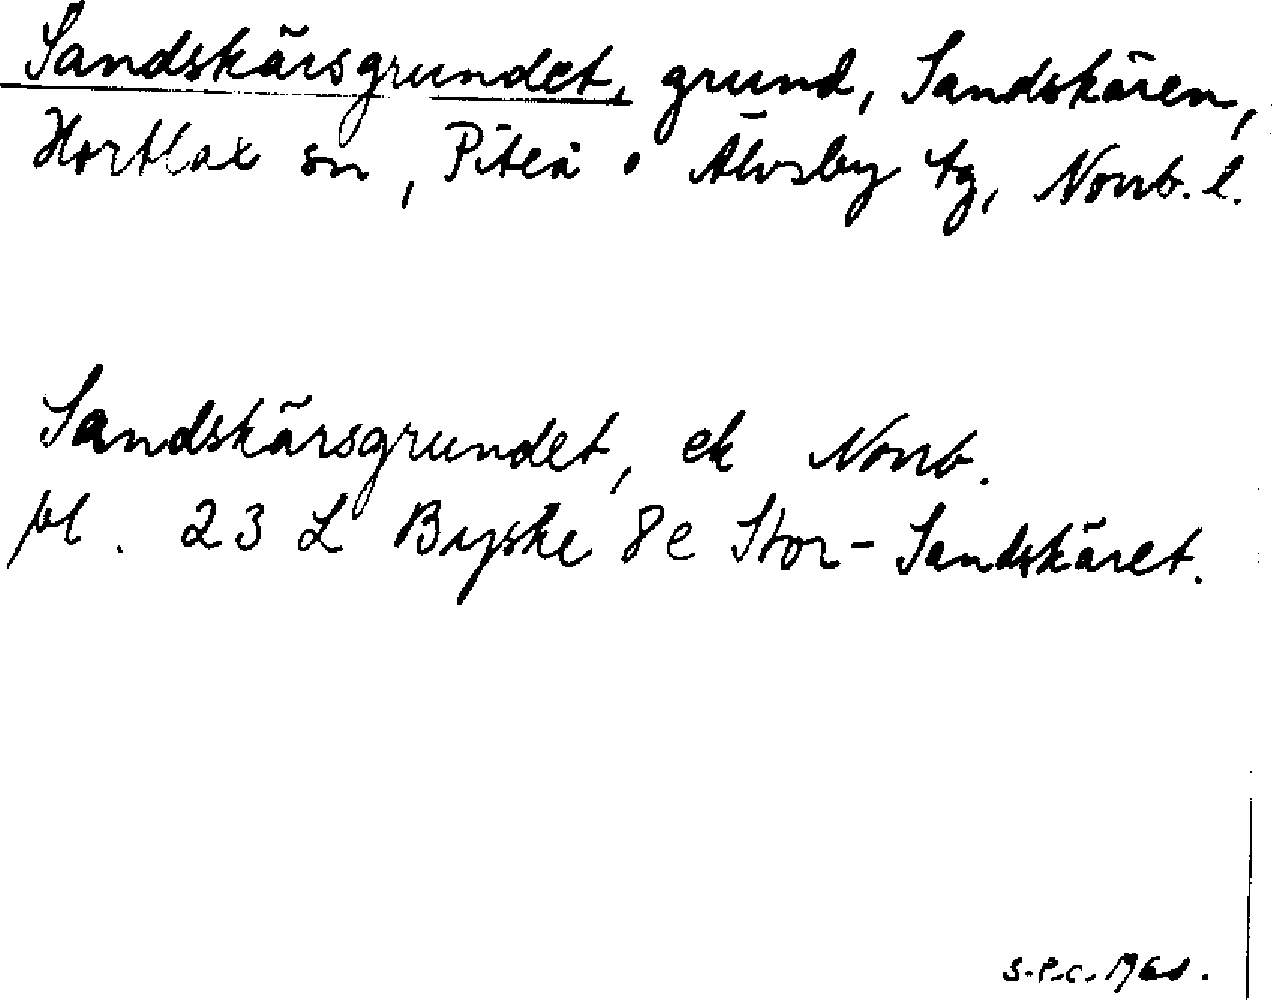 Sandskärsgrundet, grund, Sandskären,
Hortlax sn, Piteå o Älvsby tg, Norrb. l.
Sandskärsgrundet, ek Norrb.
bl. 23 L Byske 8e Stor-Sandskäret.